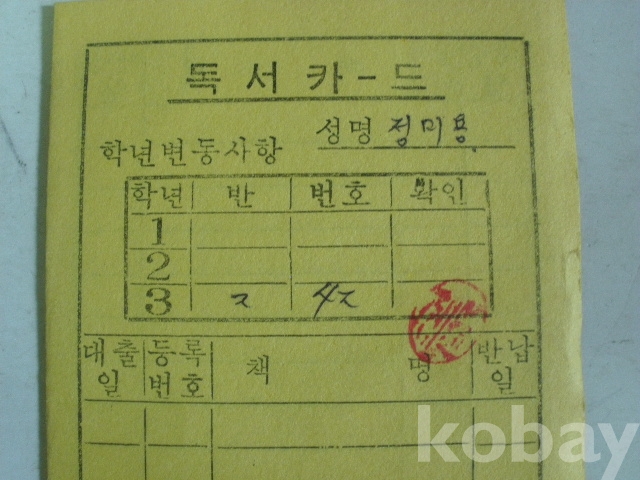 독서카-드
성명 정미용
학년변동사항
학년 반 번호 확인
1
2
3
대출일 등록번호 책 명 반납일
kobay